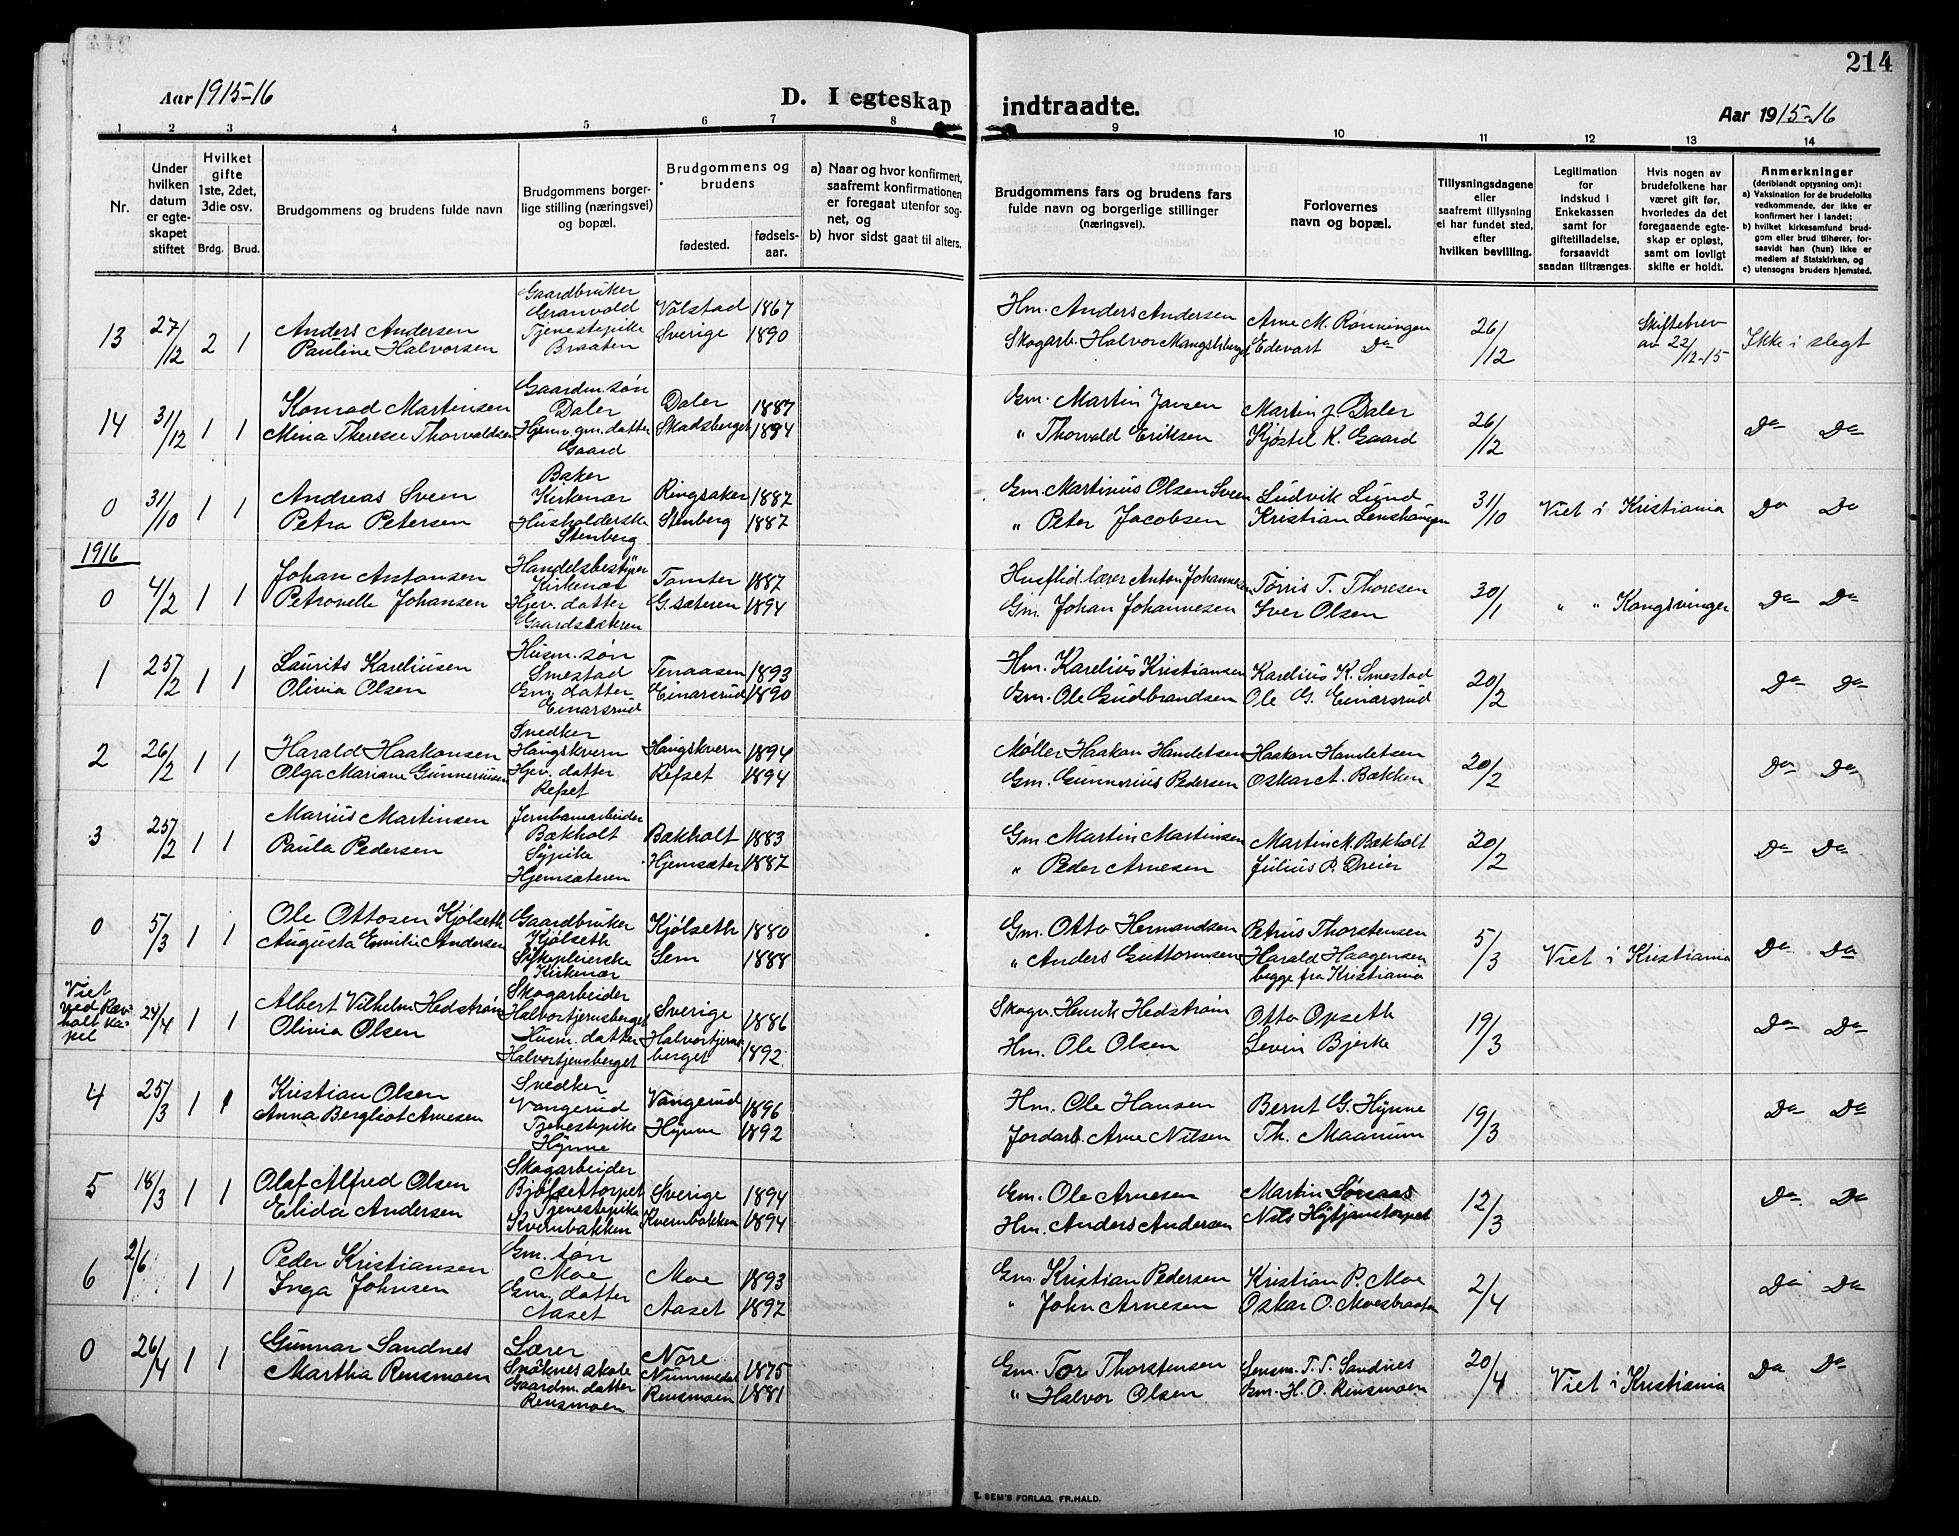 214
Aar 1915-16
D. I egteskap indtraadte.
Aar 1915-16
1 2 3 4 5 6 7 8 9 10 11 12 13 14
Nr.
Under hvilken datum er egteskapet stiftet
Hvilket gifte 1ste, 2det, 3die osv.
Brdg. Brud.
Brudgommens og brudens fulde navn
Brudgommens borgerlige stilling (næringsvei) og bopæl.
Brudgommens og brudens
fødested.
fødselsaar.
a) Naar og hvor konfirmert, saafremt konfirmationen er foregaat utenfor sognet, og
b) hvor sidst gaat til alters.
Brudgommens fars og brudens fars fulde navn og borgerlige stillinger (næringsvei).
Forlovernes navn og bopæl.
Tillysningsdagene eller saafremt tillysning ei har fundet sted, efter hvilken bevilling.
Legitimation for Indskud i Enkekassen samt for giftetilladelse, forsaavidt saadan tiltrænges.
Hvis nogen av brudefolkene har været gift før, hvorledes da det foregaaende egteskap er opløst, samt om lovligt skifte er holdt.
Anmerkninger
(deriblandt oplysning om):
a) Vaksination for de brudefolks vedkommende, der ikke er konfirmert her i landet;
b) hvilket kirkesamfund brudgom eller brud tilhører, forsaavidt han (hun) ikke er medlem af Statskirken, og
c) utensogns bruders hjemsted.
13 27/12 2 1 Anders Andersen Pauline Halvorsen Gaardbruker Granvold Tjenestepike Braaten Volstad Sverige 1867 1890 Hm. Anders Andersen Skogarb. Halvor Mangslsberget Arne M. Rønningen Edevart Do 26/12 Skiftebrev av 22/12-15 Ikke i slegt
14 31/12 1 1 Konrad Martinsen Mina Therese Thorvaldsen Gaardm. søn Daler Hjemv. gm. datter Gaard Daler Skadsberget 1887 1894 Gm. Martin Jansen " Thorvald Eriksen Martin J. Daler Kjøstil K. Gaard 26/12 Do Do
0 31/10 1 1 Andreas Sveen Petra Petersen Baker Kirkenær Husholderske Stenberg Ringsaker Stenberg 1887 1887 Gm. Martinus Olsen Sveen " Peter Jacobsen Ludvik Lund Kristian Lenshaugen 31/10 Viet i Kristiania Do Do
1916
0 4/2 1 1 Johan Antonsen Petronelle Johansen Handelsbestyrer Kirkenær Hjev. datter Gaardsæteren Tomter G.sæteren 1887 1894 Husflid.lærer Anton Johannesen Gm. Johan Johannesen Torris T. Thoresen Iver Olsen 30/1 " " Kongsvinger Do Do
1 25/2 1 1 Laurits Kareliusen Olivia Olsen Husm. søn Smestad Gm. datter Einarsrud Tenaasen Einarsrud 1893 1890 Hm. Karelius Kristiansen Gm. Ole Gudbrandsen Karelius K. Smestad Ole G. Einarsrud 20/2 Do Do
2 26/2 1 1 Harald Haakonsen Olga Mariane Gunneriusen Snedker Haugskvern Hjev. datter Refset Haugskvern Refset 1894 1894 Møller Haakon Handetsen Gm. Gunnerius Pedersen Haakon Handetsen Oskar A. Bækken 20/2 Do Do
3 25/2 1 1 Marius Martinsen Paula Pedersen Jernbanearbeider Bækholt Sypike Hjemsæteren Bækholt Hjemsæter 1883 1887 Gm. Martin Martinsen " Peder Arnesen Martin M. Bækholt Julius P. Dreier 20/2 Do Do
0 5/3 1 1 Ole Ottosen Kjølseth Augusta Emilie Andersen Gaardbruker Kjølseth Sykepleierske Kirkenær Kjølseth Sem 1880 1888 Gm. Otto Hermandsen " Anders Guttormsen Petrus Thorstensen Harald Haagensen begge fra Kristiania 5/3 Viet i Kristiania Do Do
Viet ved Rævholt kapel 24/4 1 1 Albert Vilhelm Hedstrøm Olivia Olsen Skogarbeider Halvortjernsberget Husm. datter Halvortjernsberget Sverige Halvortjernsberget 1886 1892 Skogv. Henrik Hedstrøm Hm. Ole Olsen Otto Opseth Levin Bjerke 19/3 Do Do
4 25/3 1 1 Kristian Olsen Anna Bergliot Arnesen Snedker Vangerud Tjenestepike Hynne Vangerud Hynne 1896 1892 Hm. Ole Hansen Jordarb. Arne Nilsen Bernt G. Hynne Th. Maanum 19/3 Do Do
5 18/3 1 1 Olaf Alfred Olsen Elida Andersen Skogarbeider Bjølsettorpet Tjenestepike Kvernbakken Sverige Kvernbakken 1894 1894 Gm. Ole Arnesen Hm. Anders Andersen Martin Sørsaas Nils Hytjanstorpet 12/3 Do Do
6 2/6 1 1 Peder Kristiansen Inga Johnsen Gm. søn Moe Gm. datter Aaset Moe Aaset 1893 1897 Gm. Kristian Pedersen " John Arnesen Kristian P. Moe Oskar O. Moesbraaten 2/4 Do Do
0 26/4 1 1 Gunnar Sandnes Martha Rensmoen Lærer Snøknes skole Gaardm. datter Rensmoen Nore Nummedal Rensmoen 1875 1881 Gm. Tor Thorstensen " Halvor Olsen Lensm. T. T. Sandnes Gm. H. O. Rensmoen 20/4 Viet i Kristiania Do Do
E. SEM'S FORLAG, FR.HALD.